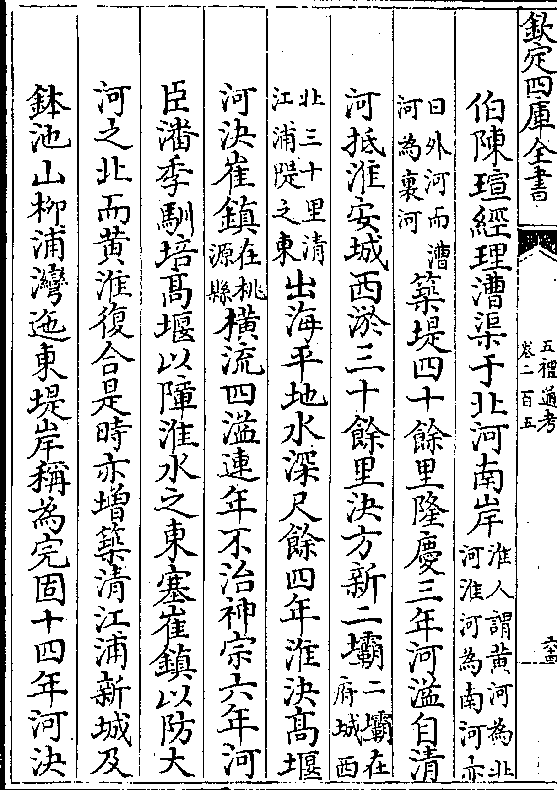 欽定四庫全書
五禮通考
卷二百五
伯陳瑄經理漕渠于北河南岸淮人謂黄河為北河淮河為南河亦
曰外河而漕河為裏河築堤四十餘里隆慶三年河溢自清
河抵淮安城西淤三十餘里決方新二壩二壩在府城西
北三十里清江浦隄之東出海平地水深尺餘四年淮決髙堰
河決崔鎮在桃源縣横流四溢連年不治神宗六年河
臣潘季馴培髙堰以障淮水之東塞崔鎮以防大
河之北而黄淮復合是時亦增築清江浦新城及
鉢池山柳浦灣迤東堤岸稱為完固十四年河決